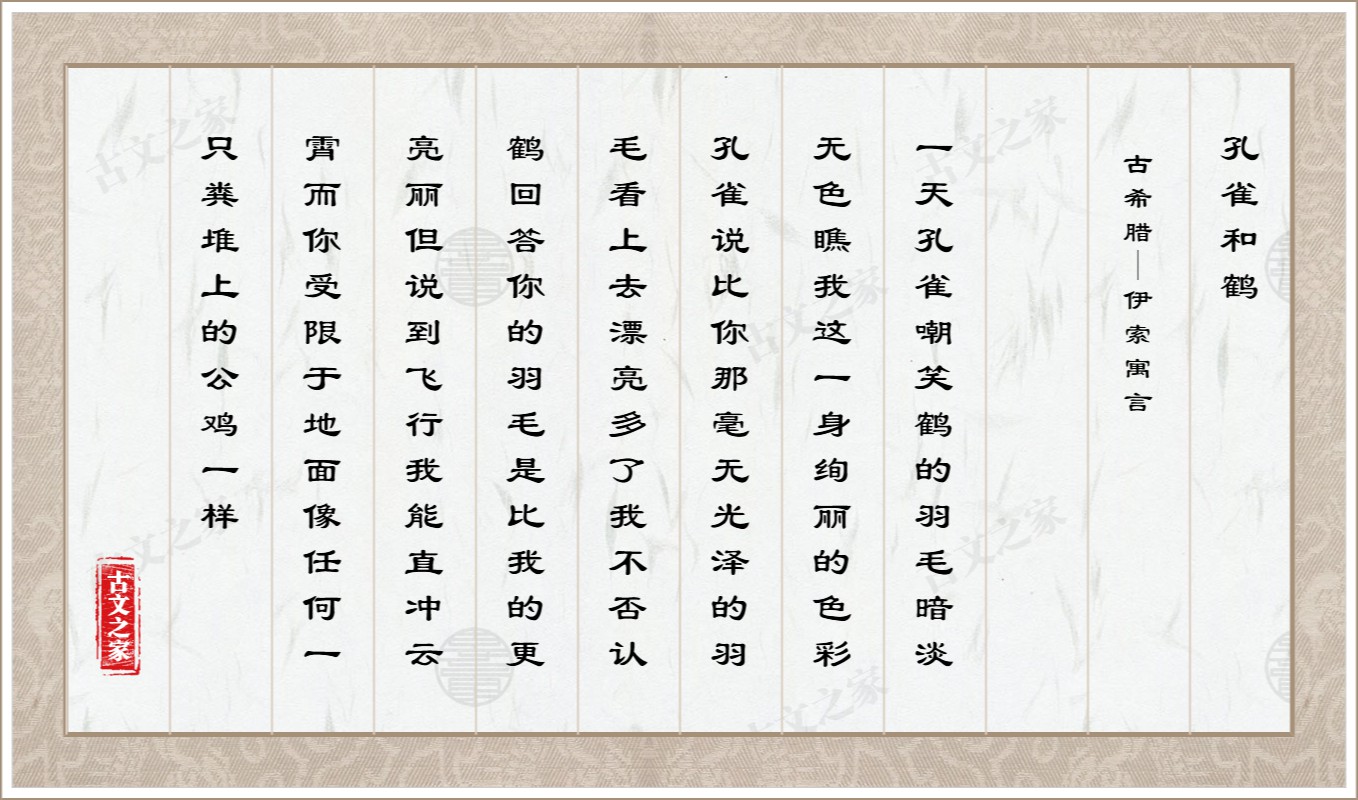 孔雀和鹤
古希腊—伊索寓言
一天孔雀嘲笑鹤的羽毛暗淡
无色瞧我这一身绚丽的色彩
孔雀说比你那毫无光泽的羽
毛看上去漂亮多了我不否认
鹤回答你的羽毛是比我的更
亮丽但说到飞行我能直冲云
霄而你受限于地面像任何一
只粪堆上的公鸡一样
古文之家
古文之家
古文之家
古文之家
古文之家
古文之家
古文之家